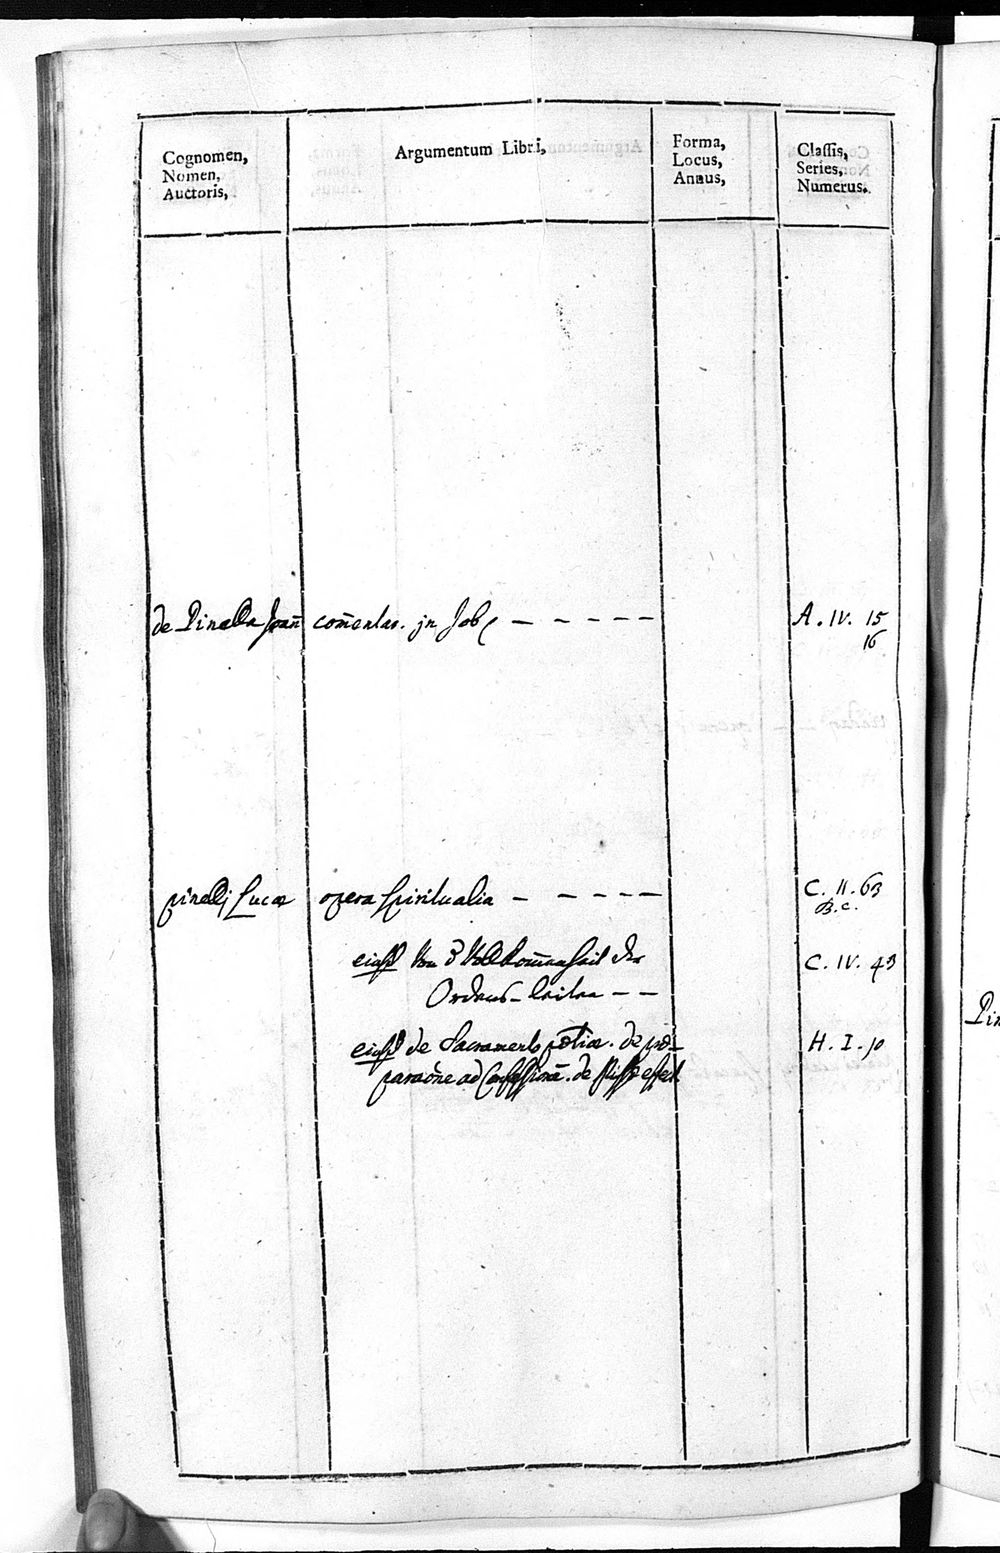 Cognomen,
Nomen,
Auctoris,
Argumentum Libri,
Forma,
Locus,
Annus,
Classis,
Series,
Numerus.
de Pineda Joañ com̄entar. jn Job, – – – – – – A. IV. 15
16
pinelli Lucæ opera spiritualia – – – – – C. II. 63
B. c.
eiusd Von d Vollkom̄enheit der
Ordens-leiten – – C. IV. 43
eiusd de Sacramento pœ̄tiæ. de præ-
paraōne ad Confessionē. de H. I. 10
Pin